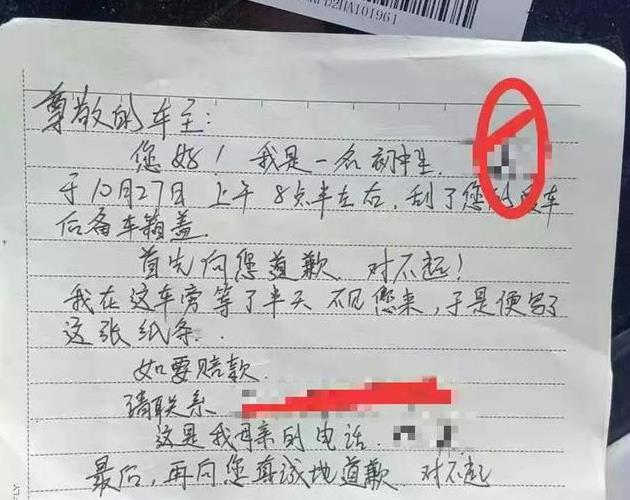 2HA101961
尊敬的车主:
您好! 我是一名初中生,
于10月27日 上午 8点半左右, 刮了您的爱车
后备车箱盖.
首先向您道歉. 对不起!
我在这车旁等了半天 不见您来, 于是便写了
这张纸条.
如要赔款.
请联系
这是我母亲的电话.
最后, 再向您真诚地道歉. 对不起